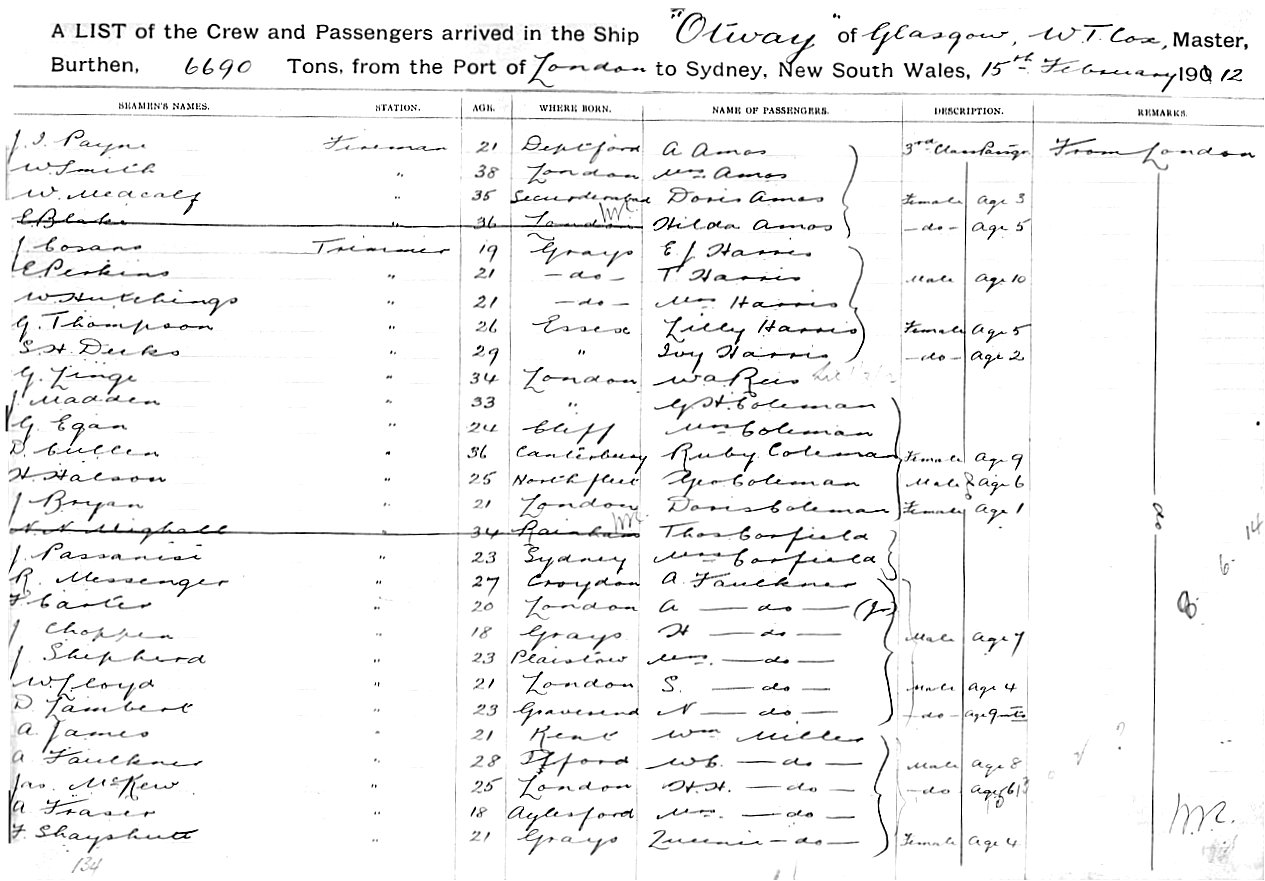 A LIST of the Crew and Passengers arrived in the Ship "Otway" of Glasgow, W.T. Cox, Master,
Burthen, 6690 Tons, from the Port of London to Sydney, New South Wales, 15th February 190 12
SEAMEN'S NAMES. STATION. AGE. WHERE BORN. NAME OF PASSENGERS. DESCRIPTION. REMARKS.
J. J. Payne Fireman 21 Deptford A Amos 3rd Class Passgr From London
W Smith " 38 London Mrs Amos
W. Medcalf " 35 Secunderabad Doris Amos Female Age 3
E Blake " 36 London Hilda Amos -do- Age 5
J. Cosans Trimmer 19 Grays E J Harris
E Perkins " 21 -do- T Harris Male Age 10
W Hutchings " 21 -do- Mrs Harris
G. Thompson " 26 Essex Lilly Harris Female Age 5
S. H. Deeks " 29 " Ivy Harris -do- Age 2
G. Linge " 34 London W A Rees
J Madden " 33 " G H. Coleman
G. Egan " 24 Cliff Mrs Coleman
D. Cullen " 36 Canterbury Ruby Coleman Female Age 9
H. Halson " 25 Northfleet Geo Coleman Male Age 6
J Bryan " 21 London Doris Coleman Female Age 1
N. N. Mighall " 34 Rainham Thos Corfield do
J Passanisi " 23 Sydney Mrs Corfield 14
R. Messenger " 27 Croydon A. Faulkner 6
F Carter " 20 London A -do- (Jr) 8
J Choppen " 18 Grays H -do- Male Age 7
J Shepherd " 23 Plaistow Mrs. -do-
W Lloyd " 21 London S. -do- Male Age 4
D Lambert " 23 Gravesend N -do- -do- Age 9 mts
A. James " 21 Kent Wm Miller
A Faulkner " 28 Ilford W C. -do- Male Age 8
Jas. McKew " 25 London H. H. -do- -do- Age
A Fraser " 18 Aylesford Mrs. -do-
F. Shayshutt " 21 Grays Queenie -do- Female Age 4
134